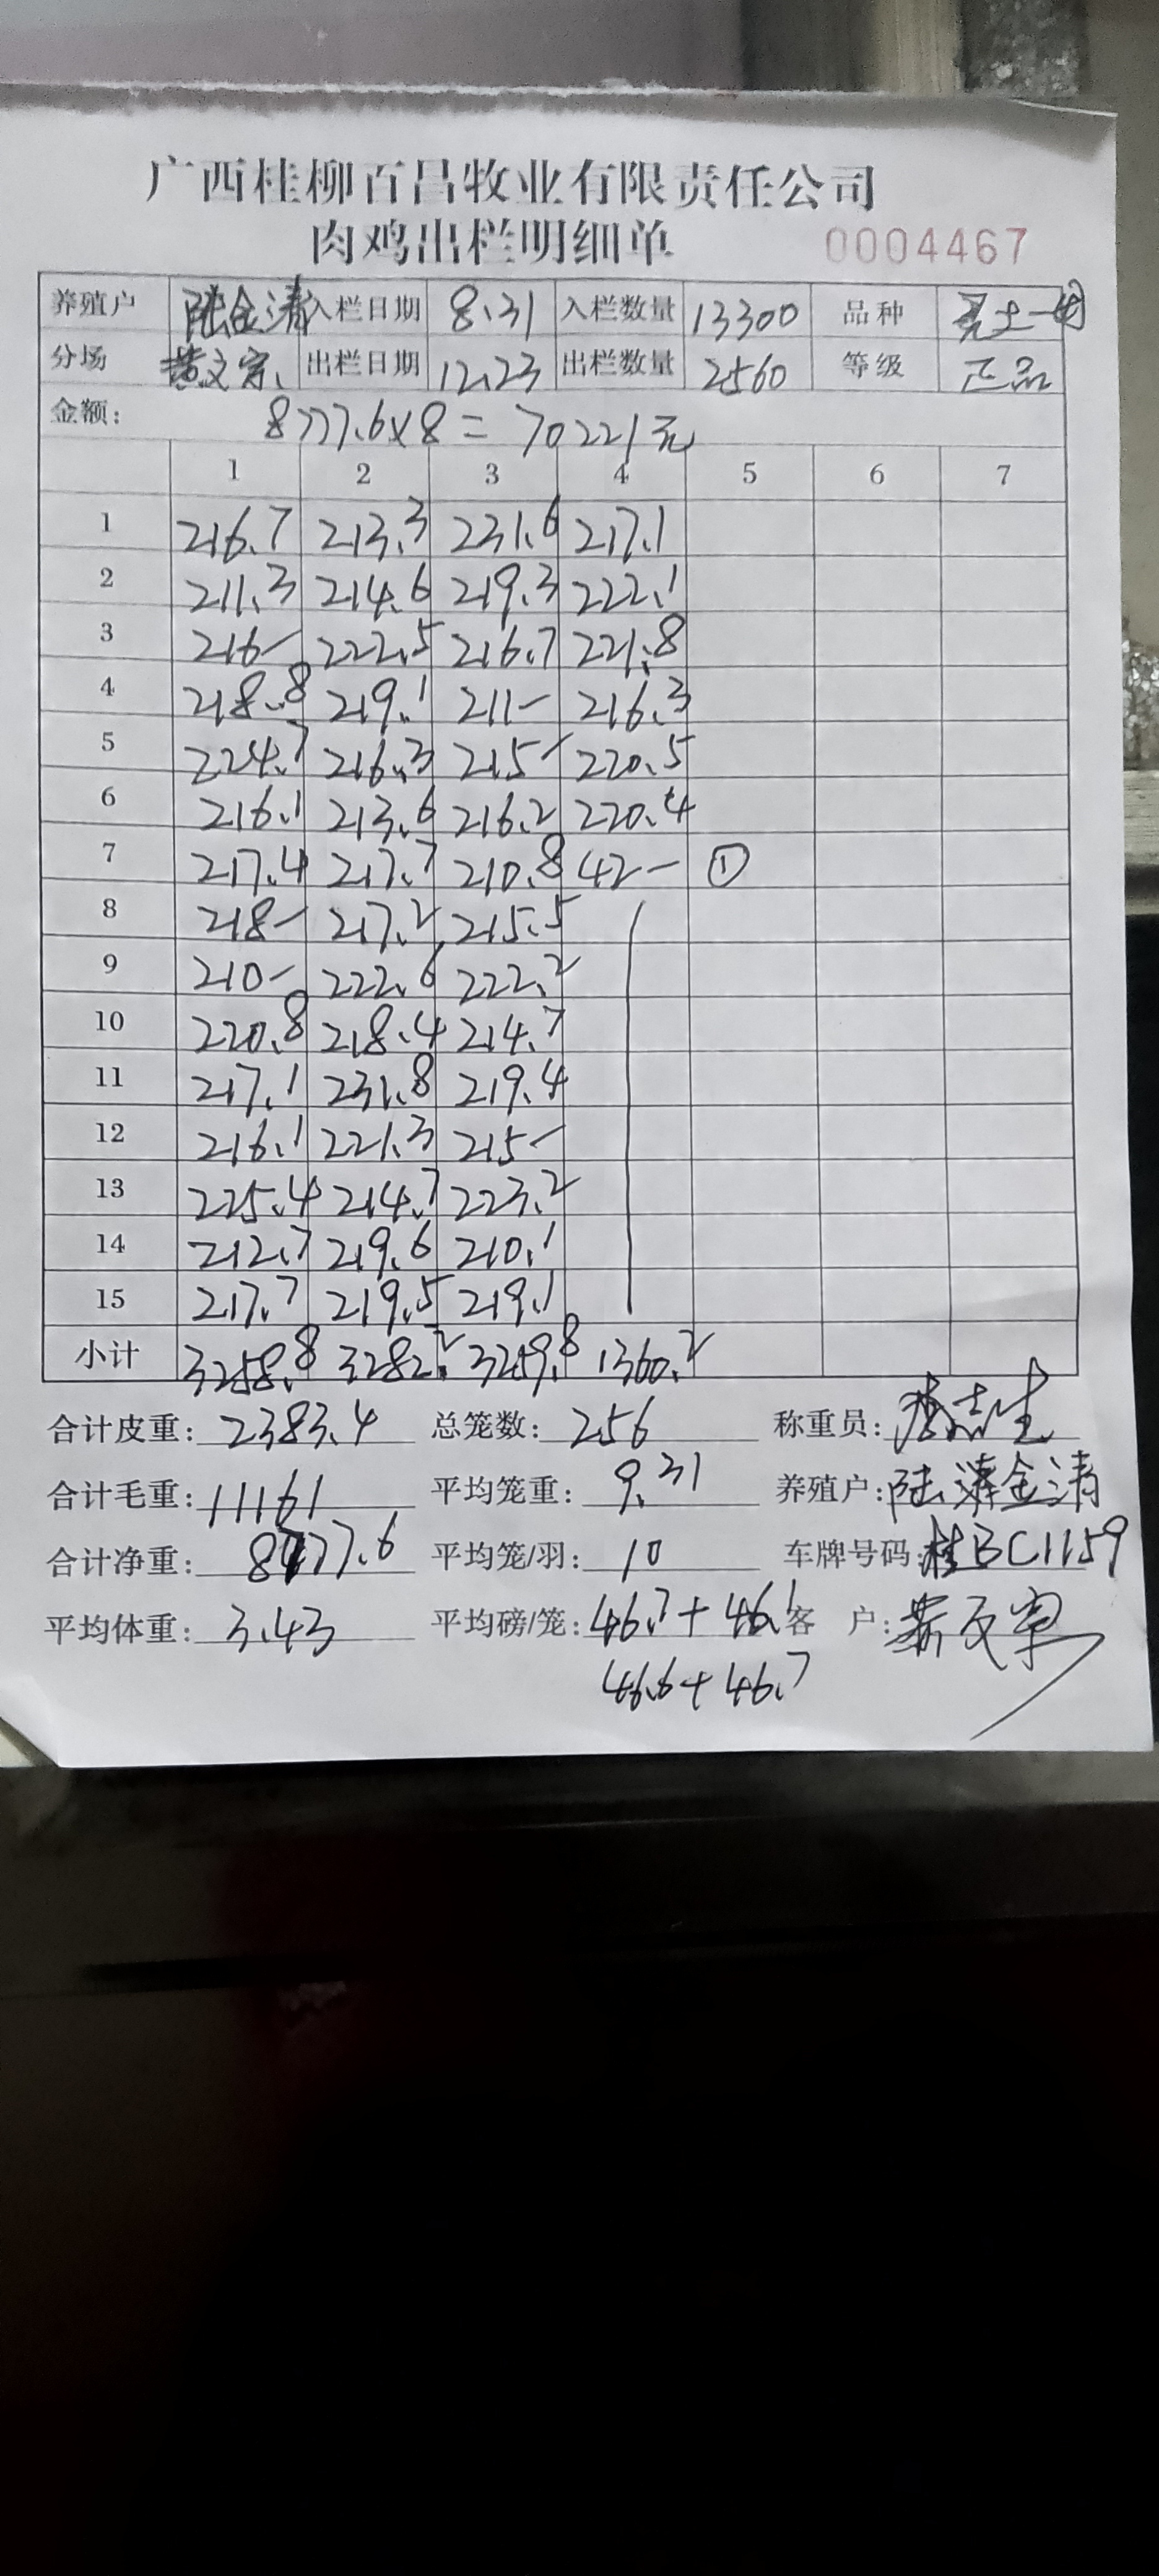 广西桂柳百昌牧业有限责任公司
肉鸡出栏明细单 0004467
养殖户 陆金清 入栏日期 8.31 入栏数量 13300 品种
分场 黄文宗 出栏日期 12.23 出栏数量 2560 等级 正品
金额: 8777.6×8=70221元
1 2 3 4 5 6 7
1 216.7 213.3 231.6 217.1
2 211.3 214.6 219.3 222.1
3 216- 222.5 216.7 221.8
4 218.8 219.1 211- 216.3
5 224.7 216.3 215- 220.5
6 216.1 213.6 216.2 220.4
7 217.4 217.7 210.8 42- ①
8 218- 217.2 215.5
9 210- 222.6 222.2
10 220.8 218.4 214.7
11 217.1 231.8 219.4
12 216.1 221.3 215-
13 225.4 214.7 223.2
14 212.7 219.6 210.1
15 217.7 219.5 219.1
小计 3258.8 3282.2 3259.8 1360.2
合计皮重: 2383.4 总笼数: 256 称重员:
合计毛重: 11161 平均笼重: 9.31 养殖户: 陆 金清
合计净重: 8777.6 平均笼/羽: 10 车牌号码: 桂BC1159
平均体重: 3.43 平均磅/笼: 46.7+46.1 客 户:
46.6+46.7